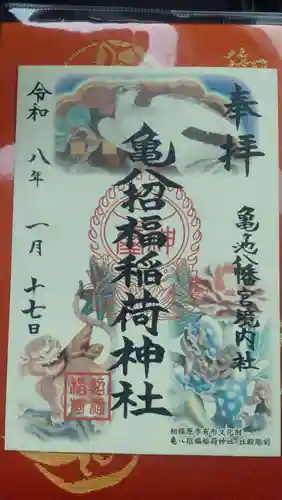 奉拝
亀ヶ池八幡宮境内社
亀八招福稲荷神社
令和八年一月十七日
相模原市有形文化財
亀八招福稲荷神社 社殿彫刻